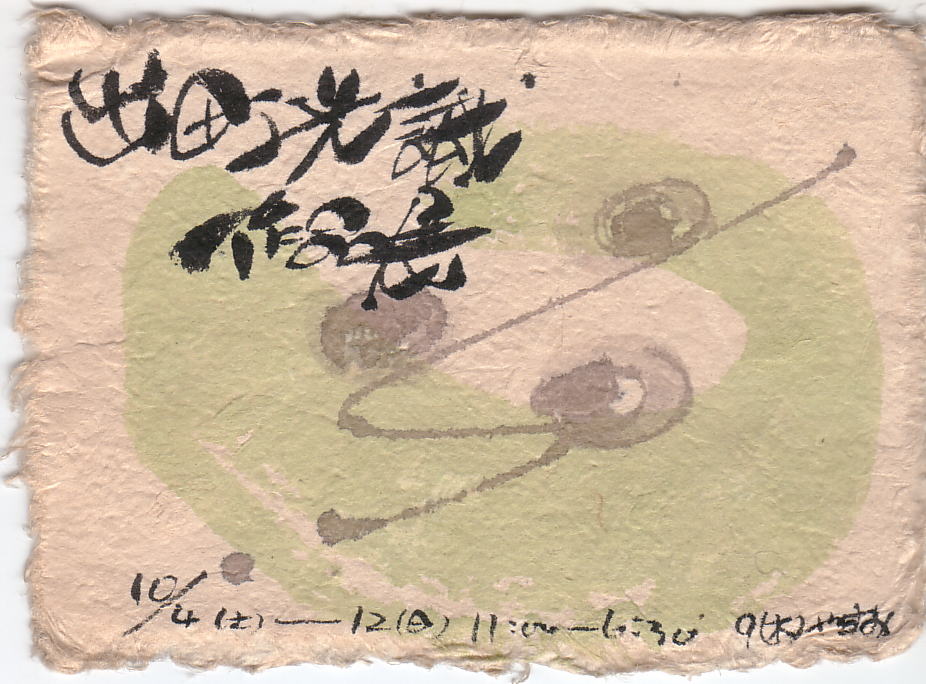 出町光識
作品展
10/4(土)—12(日) 11:00—6:30 9(木)やすみ